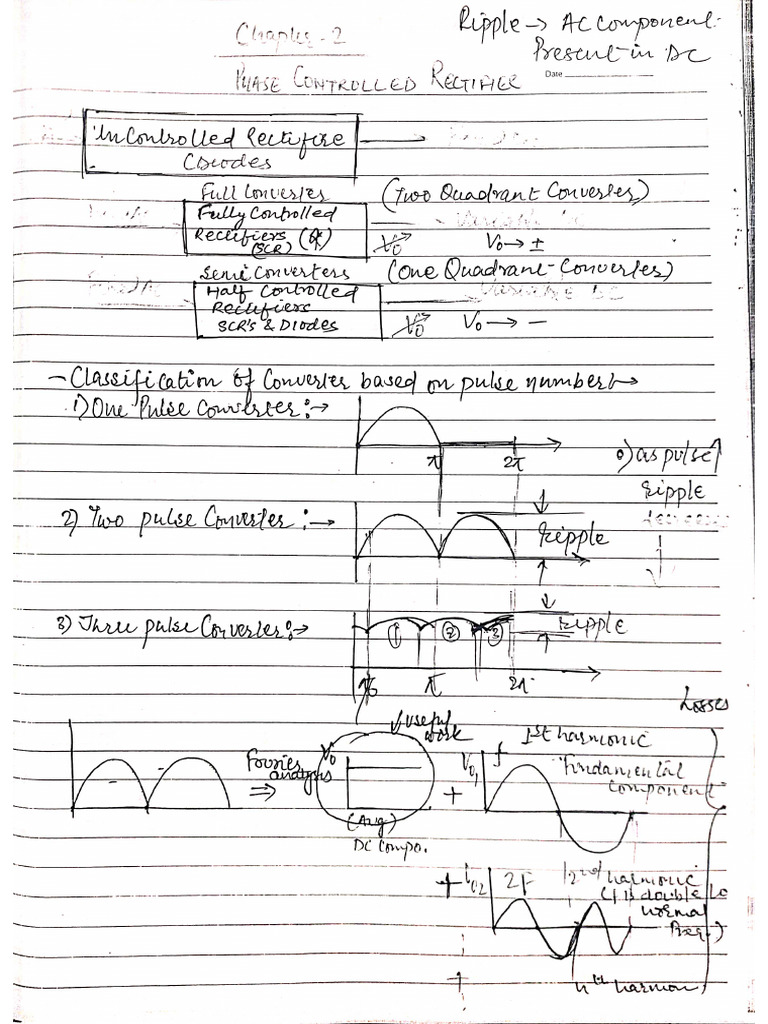 Ripple → AC Component
Present in DC
Chapter-2
Date
PHASE CONTROLLED RECTIFIER
UnControlled Rectifire
(Diodes
Full Converters (Two Quadrant Converters)
Fully Controlled
Rectifiers
(SCR)
V₀ V₀ → ±
Semi Converters (One Quadrant Converters)
Variable DC
Half Controlled
Rectifiers
SCR's & Diodes
V₀ V₀ → −
- Classification of Converter based on pulse number:→
1) One Pulse Converter:→
π 2π
as pulse↑
ripple
↓
2) Two pulse Converter:→
ripple
3) Three pulse Converter:→
① ② ③
ripple
π/6 π 2π
Losses
useful
work
1st harmonic
Fourier
analysis
⇒
V₀
+
V₀₁ f
Fundamental
Component
(Avg)
DC Compo.
+
2F
2nd harmonic
double
normal
freq.)
+
nth harmon